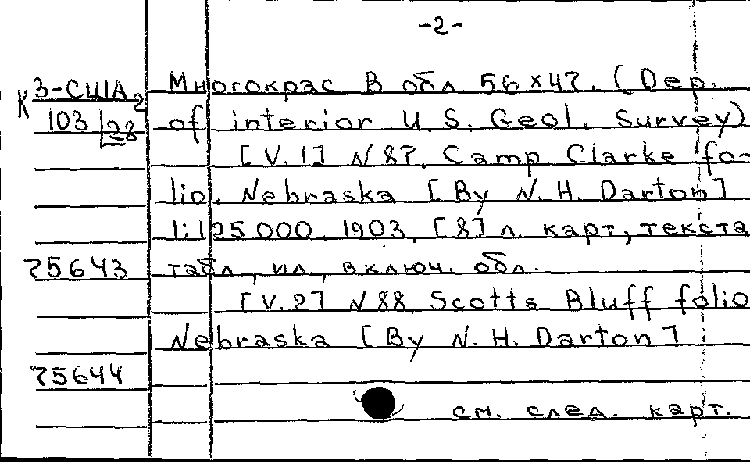 -2-
К З-США2
103 28
Многокрас В обл 56×47. (Dep.
of interior U.S. Geol. Survey)
[V.1] N 87. Camp Clarke fo-
lio. Nebraska [By N.H. Darton]
1:125000. 1903. [8] л. карт, текста
75643
табл, ил, включ. обл.
[V.2] N 88 Scotts Bluff folio
Nebraska [By N.H. Darton]
75644
см. след. карт.